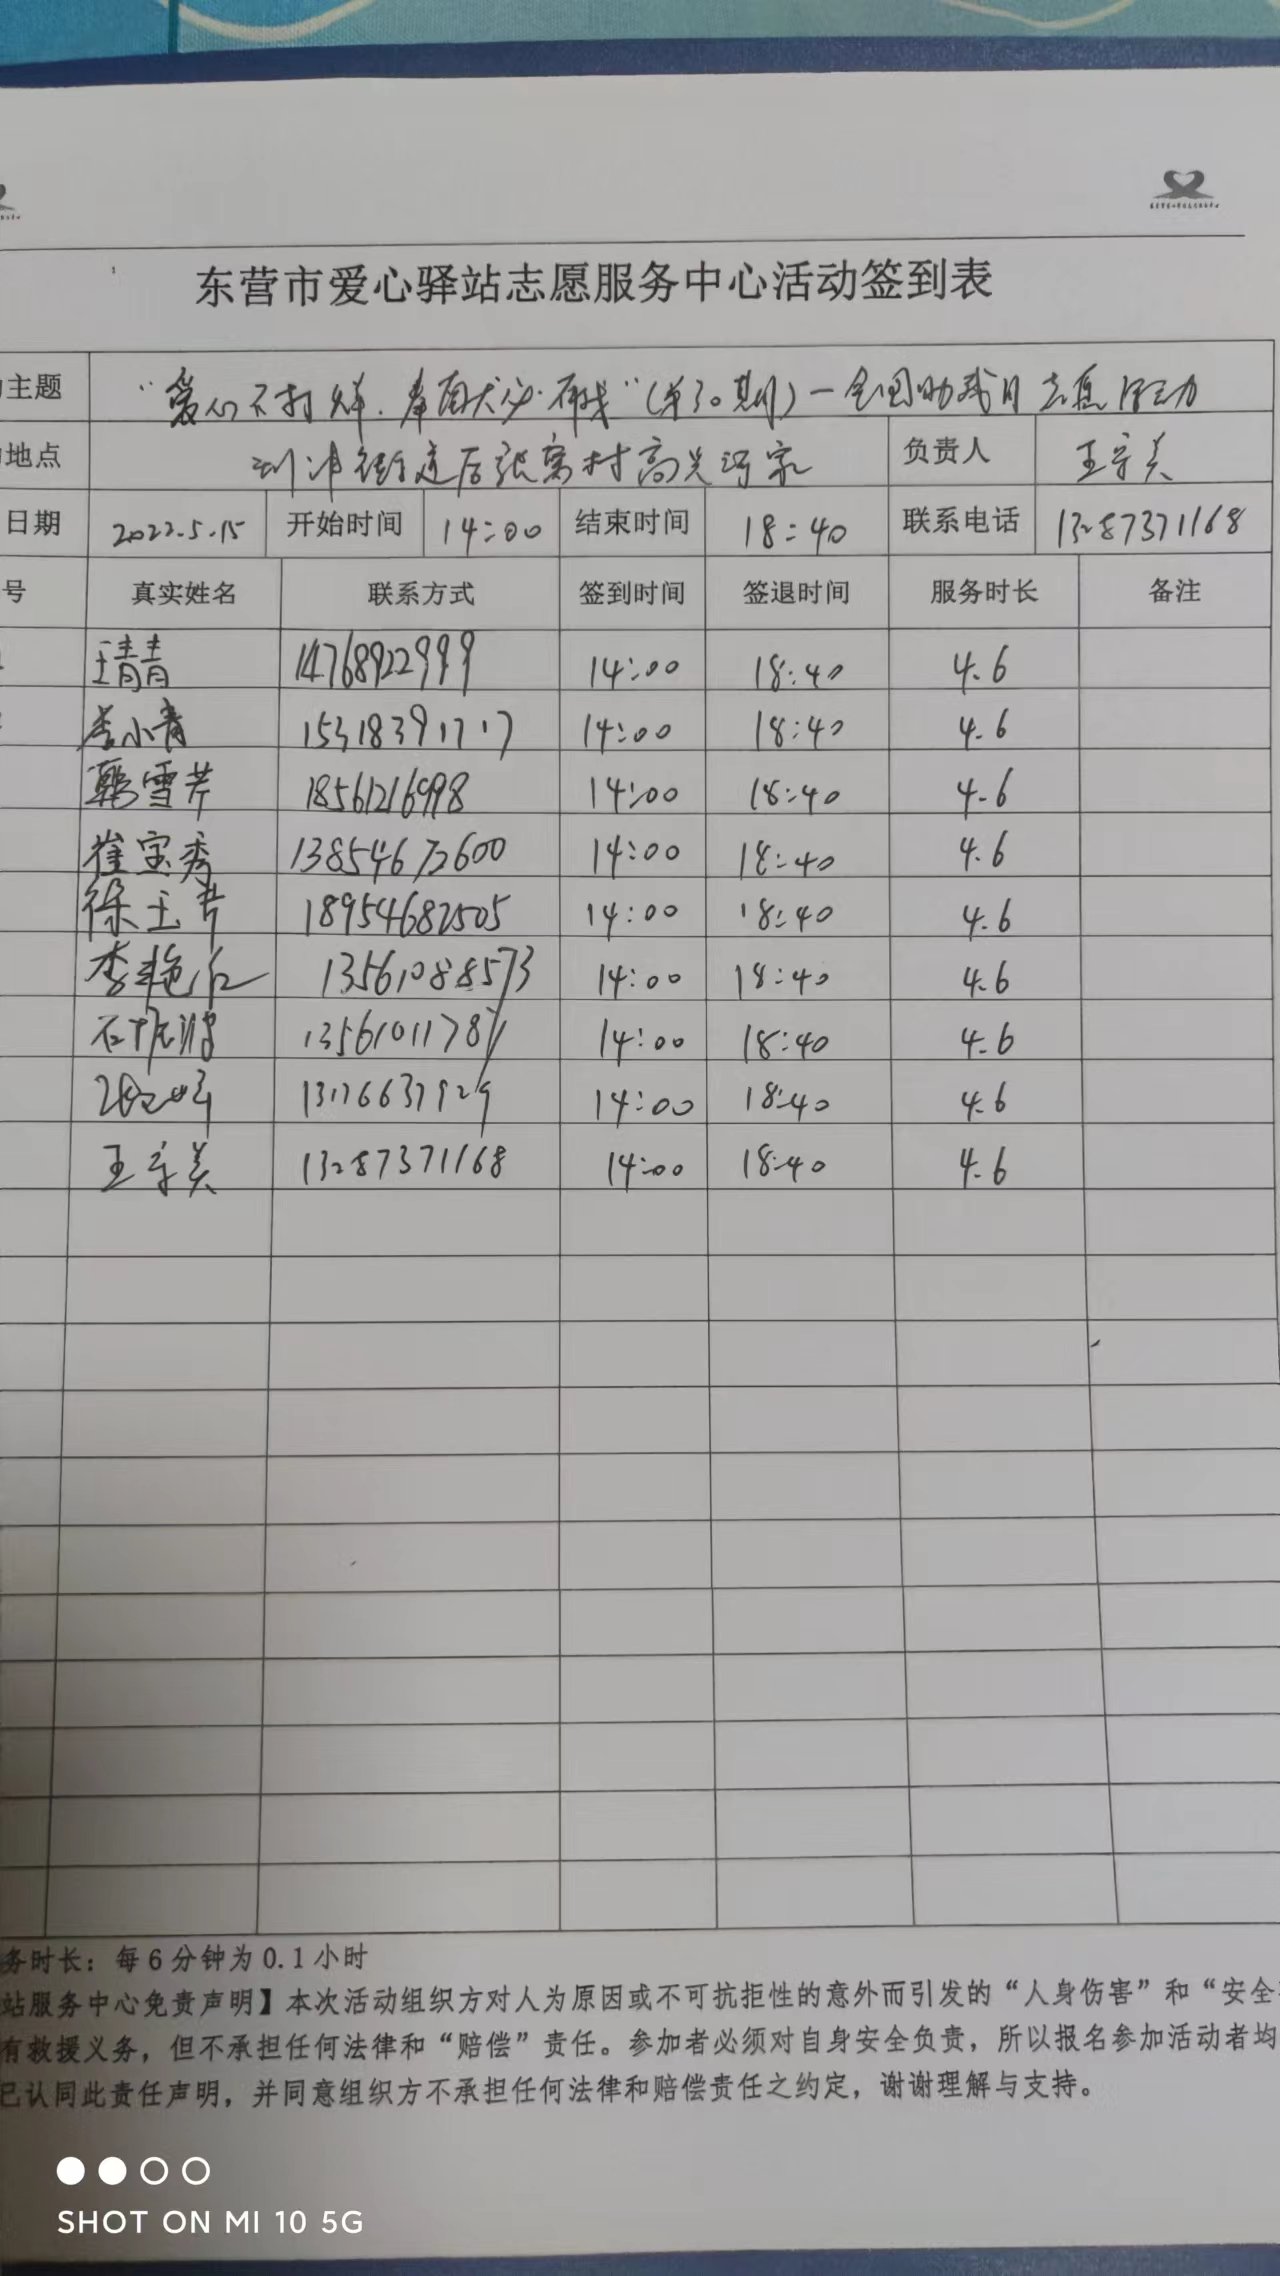 东营市爱心驿站志愿服务中心活动签到表
主题 "爱心不打烊,奉献犬 在线"(第30期)—全国助残日志愿活动
地点 街道后张窝村高兴河家 负责人 王守美
日期 2022.5.15 开始时间 14:00 结束时间 18:40 联系电话 13287371168
号 真实姓名 联系方式 签到时间 签退时间 服务时长 备注
王青青 14768922999 14:00 18:40 4.6
李小青 15318391717 14:00 18:40 4.6
韩雪芹 18561216998 14:00 18:40 4.6
崔宝秀 13854672600 14:00 18:40 4.6
徐玉芹 18954682505 14:00 18:40 4.6
李艳红 13561088573 14:00 18:40 4.6
石 1356101178 14:00 18:40 4.6
13176637929 14:00 18:40 4.6
王守美 13287371168 14:00 18:40 4.6
务时长:每6分钟为0.1小时
站服务中心免责声明】本次活动组织方对人为原因或不可抗拒性的意外而引发的“人身伤害”和“安全
有救援义务,但不承担任何法律和“赔偿”责任。参加者必须对自身安全负责,所以报名参加活动者均
已认同此责任声明,并同意组织方不承担任何法律和赔偿责任之约定,谢谢理解与支持。
SHOT ON MI 10 5G